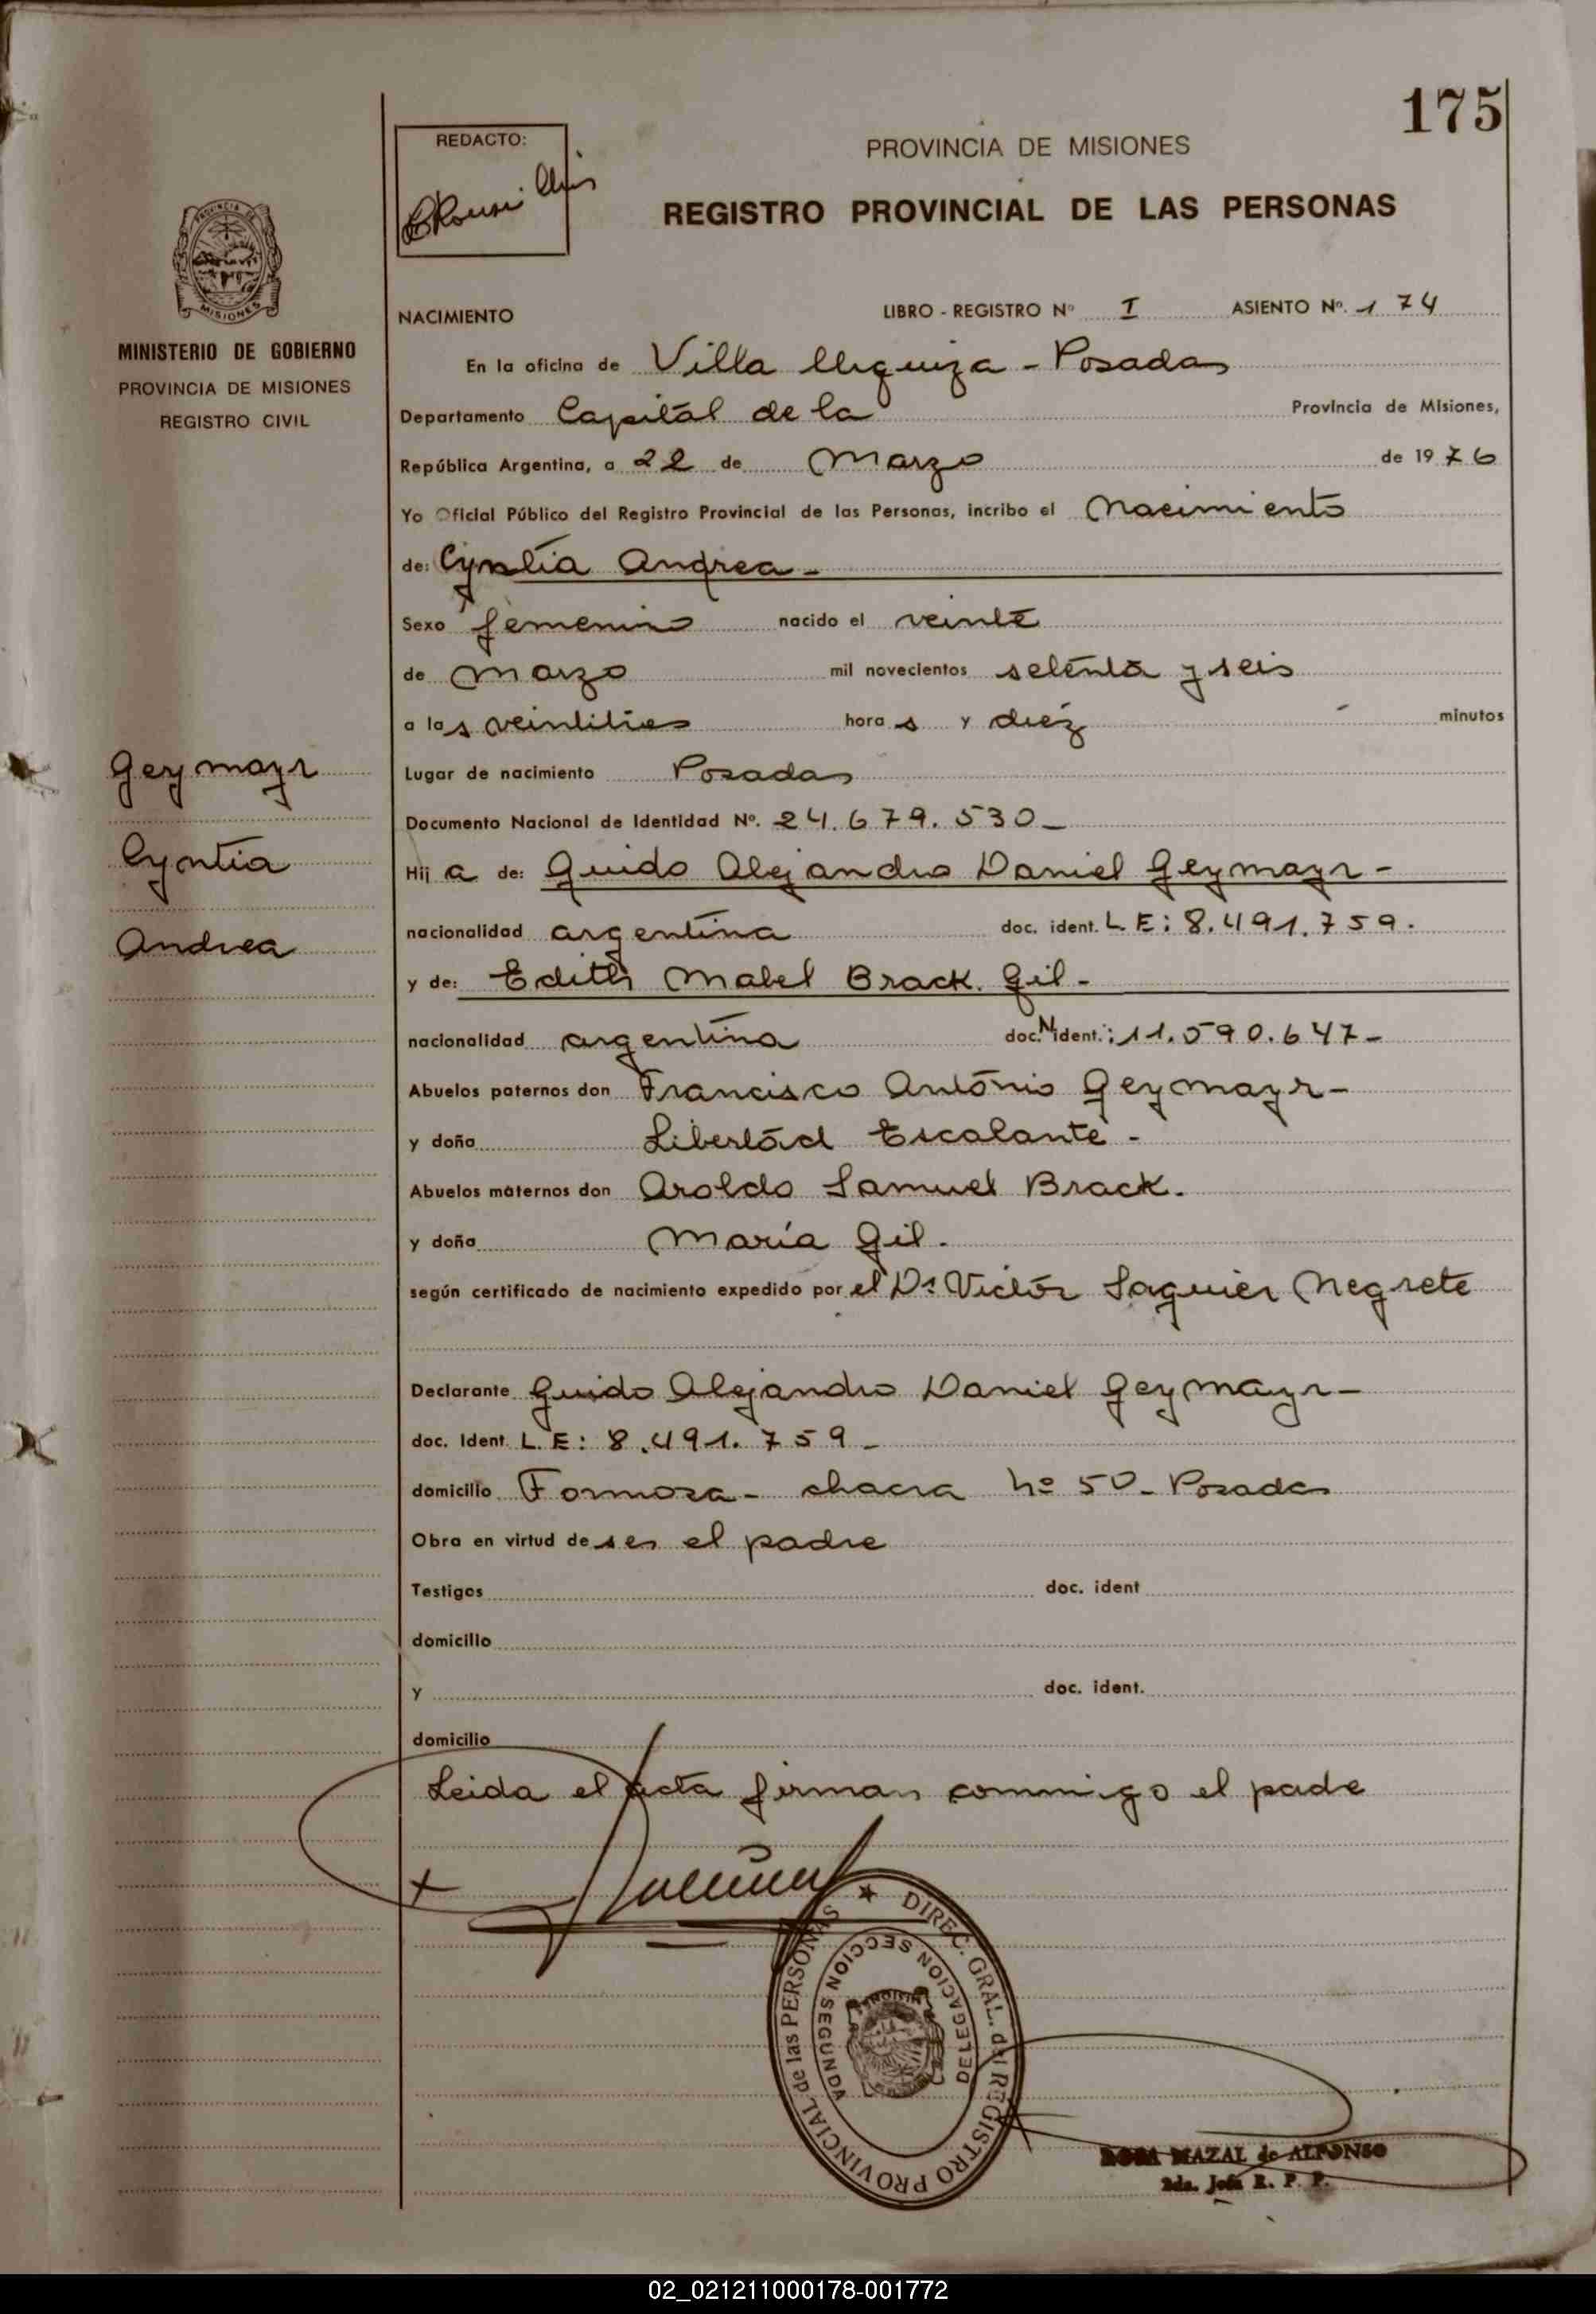 175
REDACTO:
PROVINCIA DE MISIONES
REGISTRO PROVINCIAL DE LAS PERSONAS
MISIONES
MINISTERIO DE GOBIERNO
PROVINCIA DE MISIONES
REGISTRO CIVIL
NACIMIENTO LIBRO - REGISTRO Nº I ASIENTO Nº. 174
En la oficina de Villa Urquiza - Posadas
Departamento Capital de la Provincia de Misiones,
República Argentina, a 22 de Marzo de 1976
Yo Oficial Público del Registro Provincial de las Personas, incribo el Nacimiento
de: Cyntia Andrea -
Sexo femenino nacido el veinte
de Marzo mil novecientos setenta y seis
a las veintitres horas y diez minutos
Geymayr
Cyntia
Andrea
Lugar de nacimiento Posadas
Documento Nacional de Identidad Nº. 24.679.530 -
Hija de: Guido Alejandro Daniel Geymayr -
nacionalidad argentina doc. ident. L E: 8.491.759.
y de: Edith Mabel Brack. Gil -
nacionalidad argentina doc. N ident.: 11.590.647 -
Abuelos paternos don Francisco Antonio Geymayr -
y doña Libertad Escalante -
Abuelos maternos don Aroldo Samuel Brack.
y doña María Gil.
según certificado de nacimiento expedido por el Dr Victor Saguier Negrete
Declarante Guido Alejandro Daniel Geymayr -
doc. Ident. L. E: 8.491.759 -
domicilio Formosa - chacra nº 50 - Posadas
Obra en virtud de ser el padre
Testigos doc. ident
domicilio
y doc. ident.
domicilio
Leida el acta firman conmigo el padre
DIREC. GRAL. del REGISTRO PROVINCIAL de las PERSONAS
DELEGACION SECCION SEGUNDA
ROSA MAZAL de ALFONSO
2da. Jefa R. P. P.
02_021211000178-001772